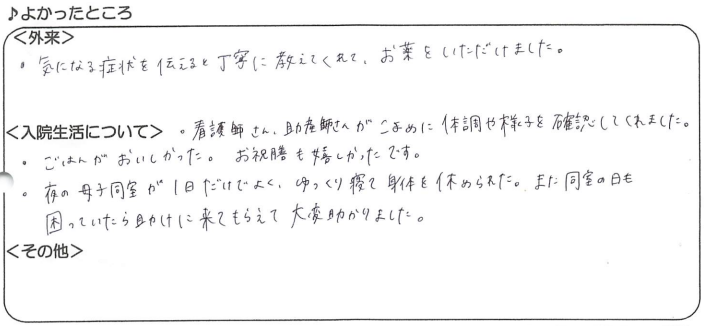 ♪よかったところ
＜外来＞
・気になる症状を伝えると丁寧に教えてくれて、お薬をいただけました。
＜入院生活について＞ ・看護師さん、助産師さんがこまめに体調や様子を確認してくれました。
・ごはんがおいしかった。 お祝膳も嬉しかったです。
・夜の母子同室が1日だけでよく、ゆっくり寝て身体を休められた。また同室の日も
困っていたら助けに来てもらえて大変助かりました。
＜その他＞